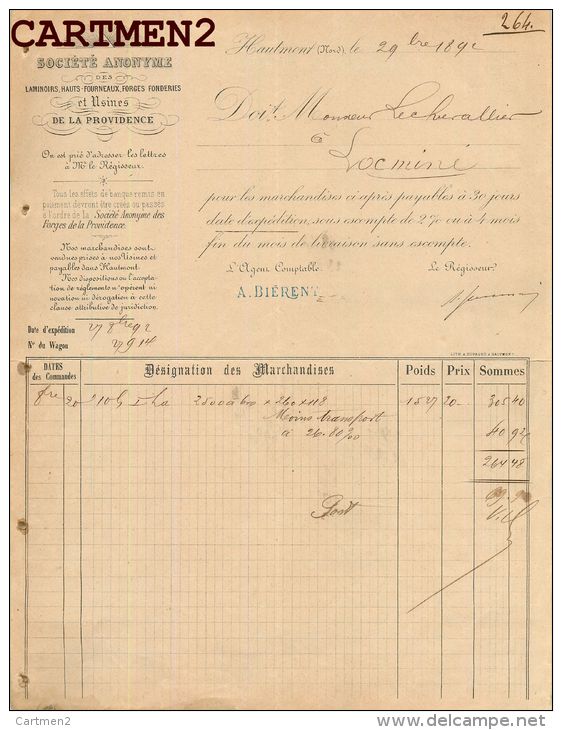 CARTMEN2
264.
SOCIÉTÉ ANONYME
DES
LAMINOIRS, HAUTS-FOURNEAUX, FORGES FONDERIES
et Usines
DE LA PROVIDENCE
On est prié d'adresser les lettres
à Mr le Régisseur.
Tous les effets de banque remis en
paiement devront être créés ou passés
à l'ordre de la Société Anonyme des
Forges de la Providence.
Nos marchandises sont
vendues prises à nos Usines et
payables dans Hautmont.
Nos dispositions ou l'accepta-
tion de règlements n'opèrent ni
novation ni dérogation à cette
clause attributive de juridiction.
Date d'expédition 27 8bre 92
N° du Wagon 27914
Hautmont (Nord), le 29 bre 1892
Doit Monsieur Lechevallier
à
Locminé
pour les marchandises ci après payables à 30 jours
date d'expédition, sous escompte de 2% ou à 4 mois
fin du mois de livraison sans escompte.
L'Agent Comptable Le Régisseur
A. BIÉRENT
LITH. A. HAUTMONT
DATES des Commandes Désignation des Marchandises Poids Prix Sommes
8bre 20 2500 à 260 x 118 1527 20 305 40
Moins transport
à 26.80 40 92
264 48
Port
Cartmen2
www.delcampe.net